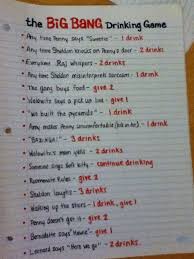 the BIG BANG Drinking Game
Any time Penny says "Sweetie" - 1 drink
Any time Sheldon knocks on Penny's door - 2 drinks
Everytime Raj whispers - 2 drinks
Any time Sheldon misinterprets sarcasm - 1 drink
The gang buys food - give 2
Wolowitz says a pick up line - give 1
"We built the pyramids" - 1 drink
Amy makes Penny uncomfortable - 1 drink
"BAZINGA!" - 3 drinks
Wolowitz's mom yells - 2 drinks
Someone sings Soft Kitty - continue drinking
Roommate Rules - give 2
Sheldon laughs - 3 drinks
- give 1
Penny doesn't get it - give 2
Bernadette says - give 1
Leonard says "Here we go" - 2 drinks